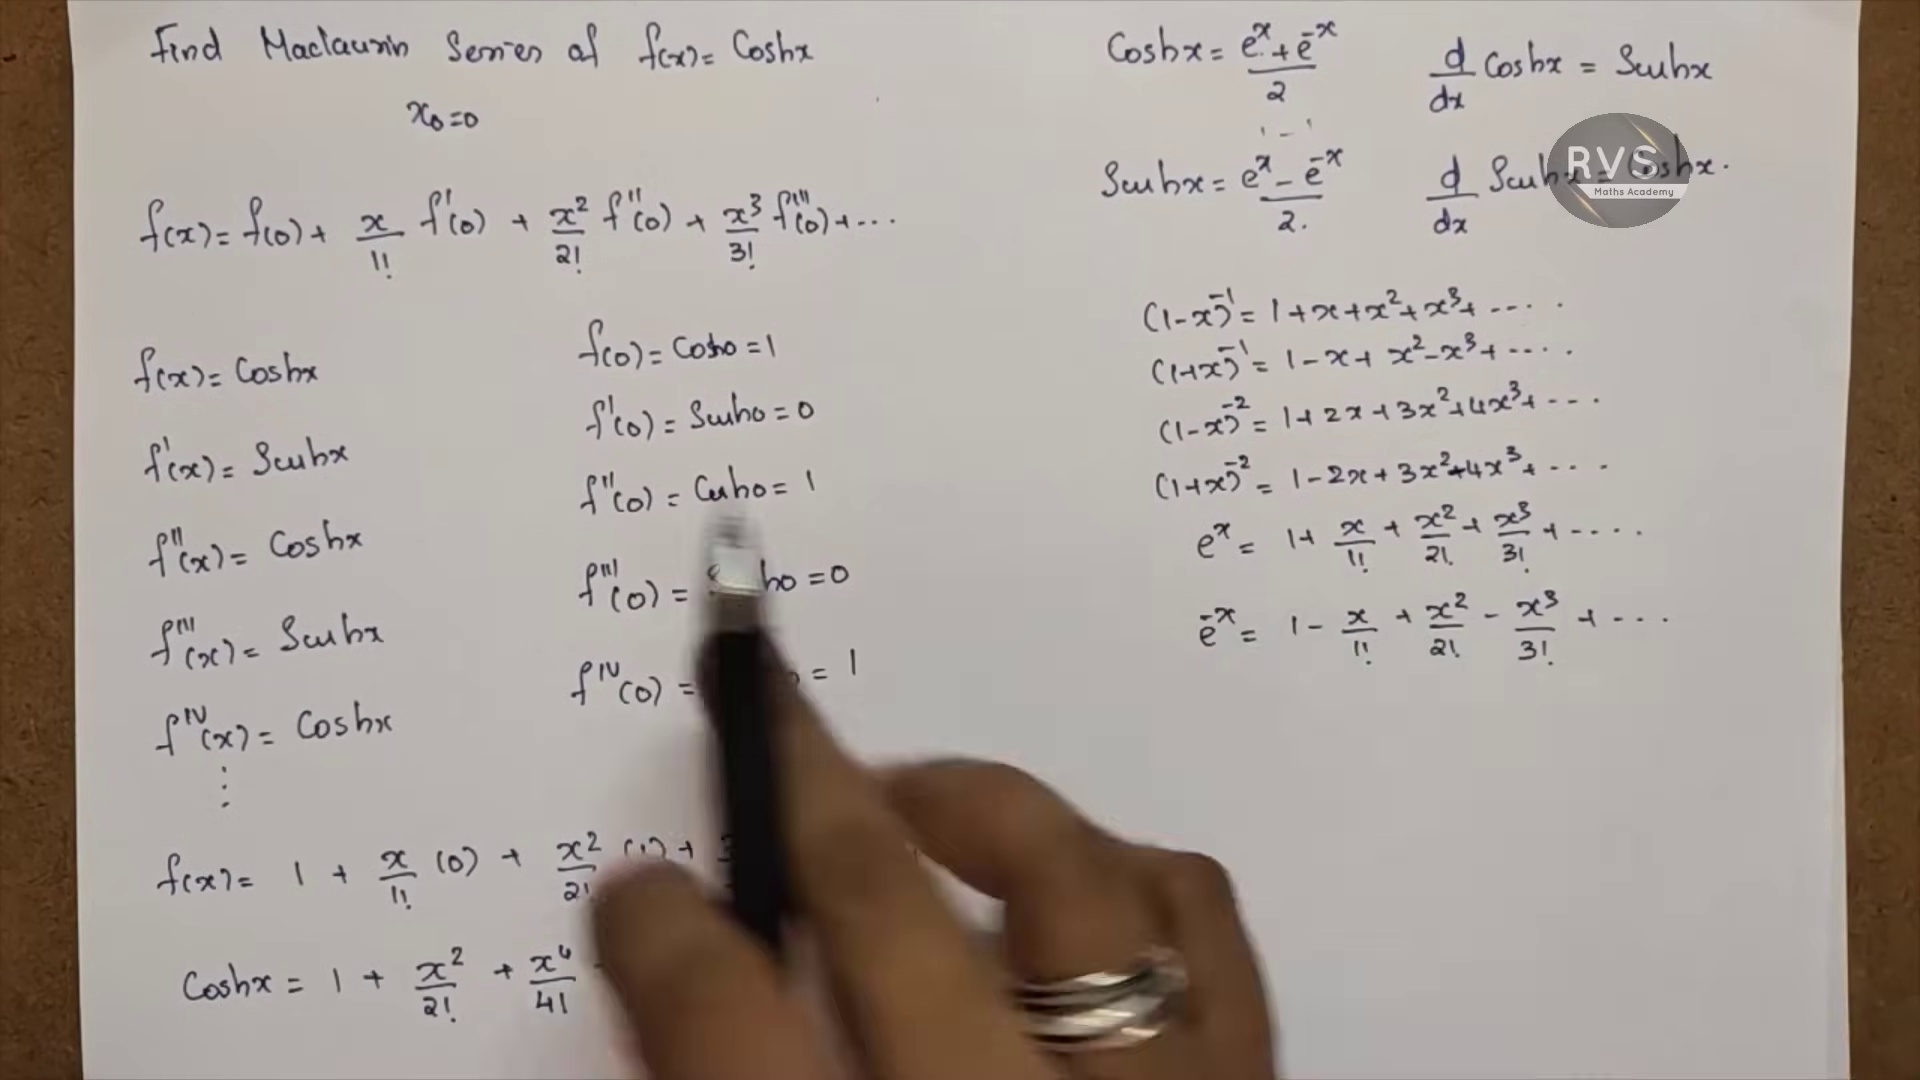 Find Maclaurin Series of f(x) = Coshx
x₀=0
f(x) = f(0) + x/1! f'(0) + x²/2! f''(0) + x³/3! f'''(0) + ...
f(x) = Coshx
f'(x) = Sinhx
f''(x) = Coshx
f'''(x) = Sinhx
f^IV(x) = Coshx
⋮
f(0) = Cosh0 = 1
f'(0) = Sinh0 = 0
f''(0) = Cosh0 = 1
f'''(0) = ho = 0
f^IV(0) = = 1
f(x) = 1 + x/1! (0) + x²/2! (1) +
Coshx = 1 + x²/2! + x⁴/4!
Coshx = (e^x + e^-x)/2
d/dx Coshx = Sinhx
Sinhx = (e^x - e^-x)/2.
d/dx Sinhx = Coshx.
RVS
Maths Academy
(1-x)^-1 = 1+x+x²+x³+ ....
(1+x)^-1 = 1-x+x²-x³+ ....
(1-x)^-2 = 1+2x+3x²+4x³+ ...
(1+x)^-2 = 1-2x+3x²-4x³+ ...
e^x = 1 + x/1! + x²/2! + x³/3! + ....
e^-x = 1 - x/1! + x²/2! - x³/3! + ...